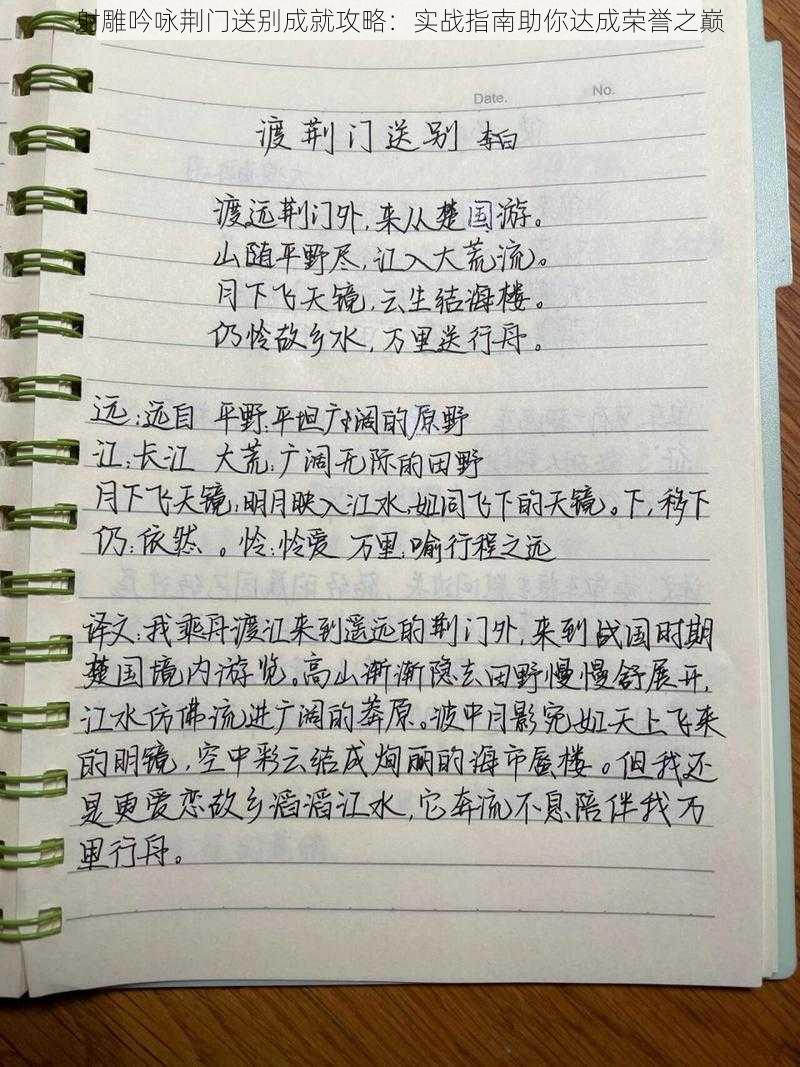 射雕吟咏荆门送别成就攻略：实战指南助你达成荣誉之巅
Date.
No.
渡荆门送别 李白
渡远荆门外,来从楚国游。
山随平野尽,江入大荒流。
月下飞天镜,云生结海楼。
仍怜故乡水,万里送行舟。
远:远自 平野:平坦广阔的原野
江:长江 大荒:广阔无际的田野
月下飞天镜:明月映入江水,如同飞下的天镜。下,移下
仍:依然。怜:怜爱 万里:喻行程之远
译文:我乘舟渡江来到遥远的荆门外,来到战国时期
楚国境内游览。高山渐渐隐去田野慢慢舒展开,
江水仿佛流进广阔的莽原。波中月影宛如天上飞来
的明镜,空中彩云结成绚丽的海市蜃楼。但我还
是更爱恋故乡滔滔江水,它奔流不息陪伴我万
里行舟。